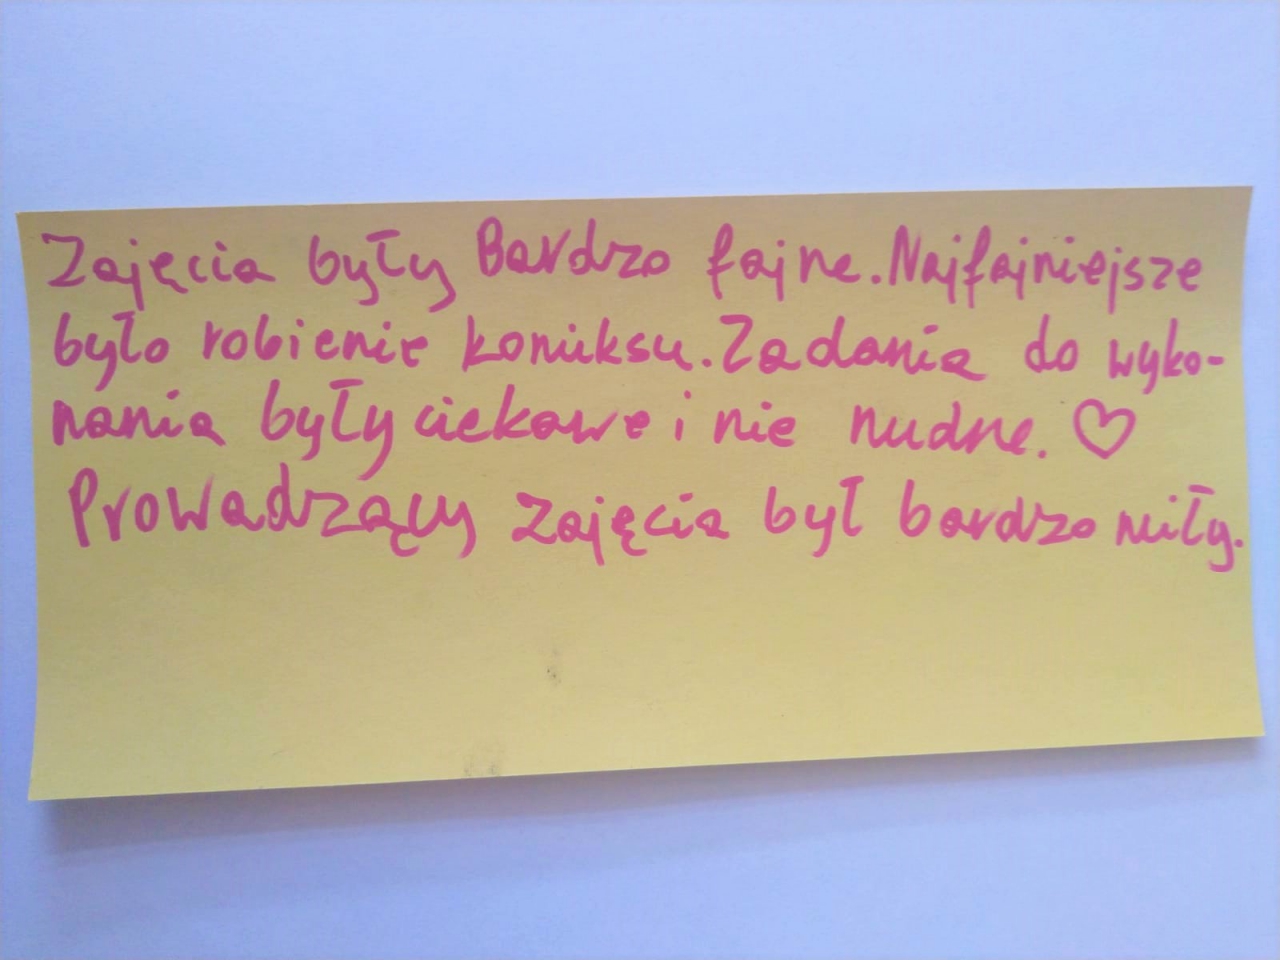 Zajęcia były Bardzo fajne. Najfajniejsze
było robienie komiksu. Zadania do wyko-
nania były ciekawe i nie nudne. ♡
Prowadzący zajęcia był bardzo miły.